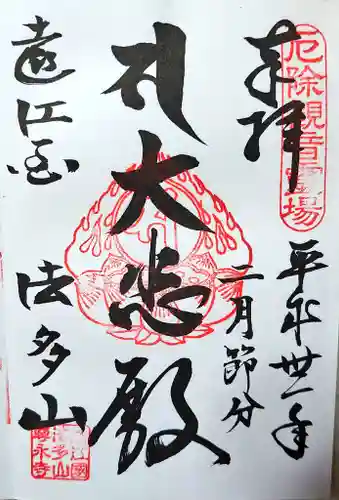 奉拝
厄除観音霊場
平成卅一年
二月節分
大悲殿
遠江国
法多山
法多山
尊永寺